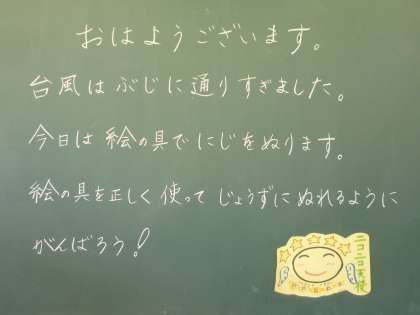 おはようございます。
台風はぶじに通りすぎました。
今日は絵の具でにじをぬります。
絵の具を正しく使ってじょうずにぬれるように
がんばろう!
ニコニコ天使